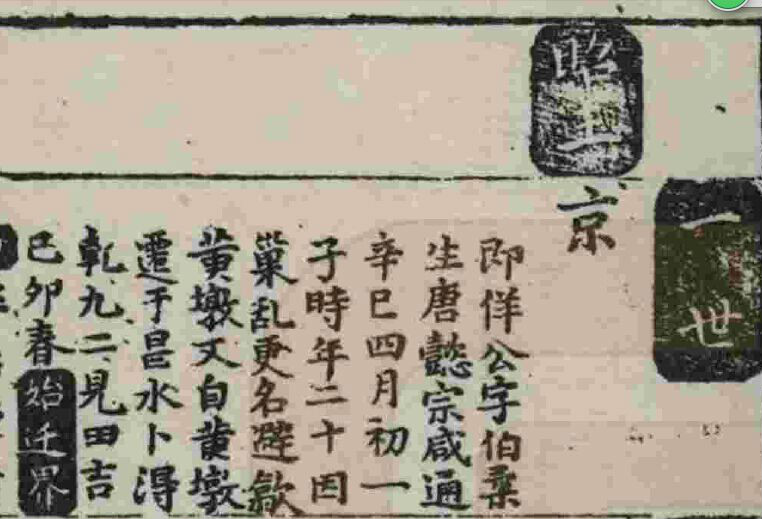 一世
昭王
京
即佯公字伯桑
生唐懿宗咸通
辛巳四月初一
子時年二十因
巢乱更名避歙
黄墩又自黄墩
遷于昌水卜得
乹九二見田吉
己卯春始迁界